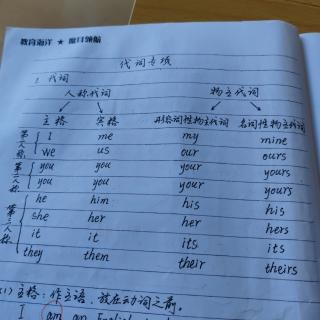 教育海洋 ★ 瞩目领航
代词专项
1. 代词
人称代词 物主代词
主格 宾格 形容词性物主代词 名词性物主代词
第一人称 I me my mine
we us our ours
第二人称 you you your yours
you you your yours
第三人称 he him his his
she her her hers
it it its its
they them their theirs
(1) 主格：作主语，放在动词之前。
I am an English